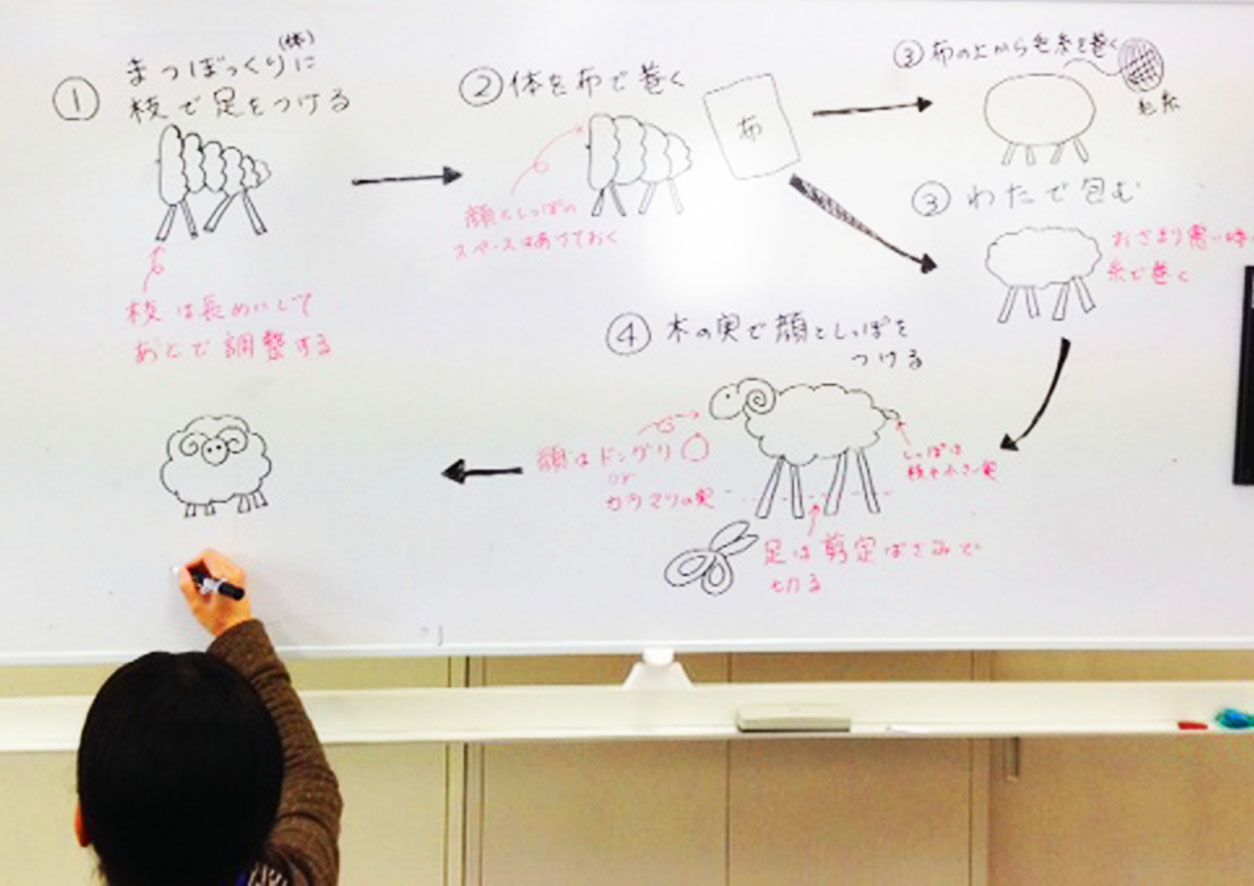 ① まつぼっくり(体)に
枝で足をつける
枝は長めにして
あとで調整する
② 体を布で巻く
布
顔としっぽの
スペースはあけておく
③ 布の上から毛糸を巻く
毛糸
③ わたで包む
おさまり悪い時
糸で巻く
④ 木の実で顔としっぽを
つける
顔はドングリ
or
カラマツの実
しっぽは
枝や小さい実
足は剪定ばさみで
切る